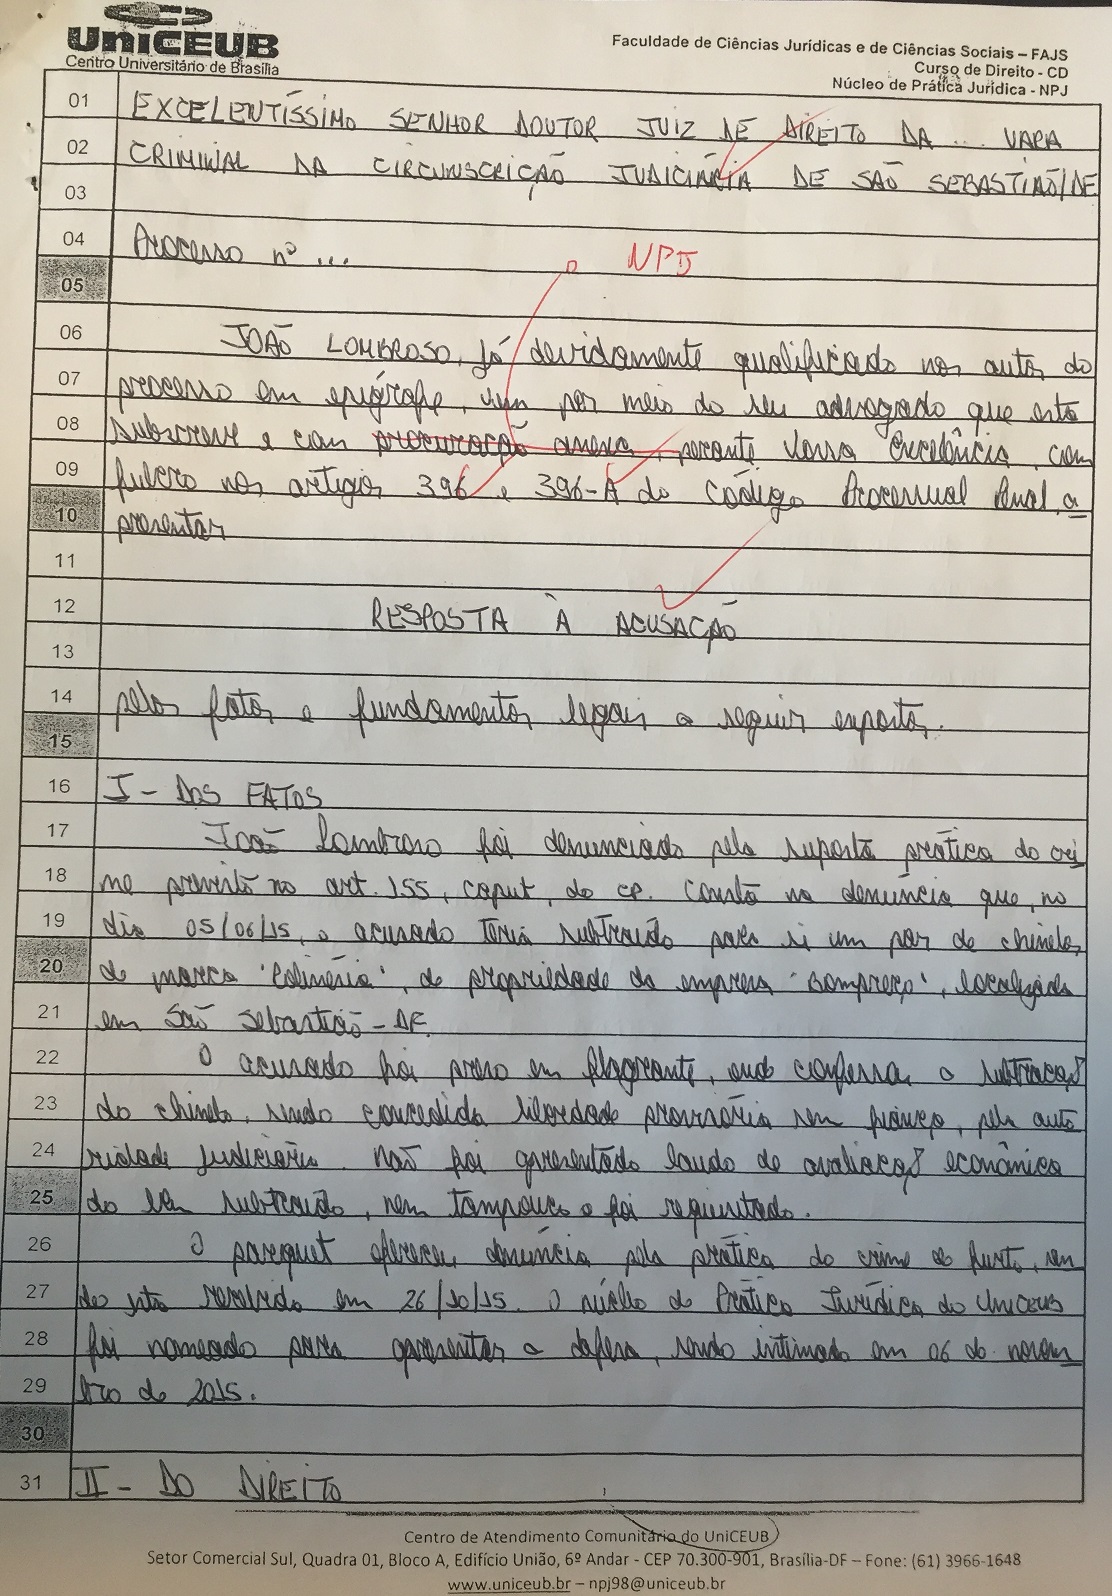 UniCEUB
Centro Universitário de Brasília
Faculdade de Ciências Jurídicas e de Ciências Sociais – FAJS
Curso de Direito - CD
Núcleo de Prática Jurídica - NPJ
01 EXCELENTÍSSIMO SENHOR DOUTOR JUIZ DE DIREITO DA ... VARA
02 CRIMINAL DA CIRCUNSCRIÇÃO JUDICIÁRIA DE SÃO SEBASTIÃO/DF
03
04 Processo nº ...
NPJ
05
06 JOÃO LOMBROSO, já devidamente qualificado nos autos do
07 processo em epígrafe, vem por meio do seu advogado que esta
08 subscreve e com procuração anexa, perante Vossa Excelência, com
09 fulcro nos artigos 396 e 396-A do Código Processual Penal, a
10 presentar
11
12 RESPOSTA À ACUSAÇÃO
13
14 pelos fatos e fundamentos legais a seguir expostos.
15
16 I - DOS FATOS
17 João Lombroso foi denunciado pela suposta prática do cri
18 me previsto no art. 155, caput, do CP. Consta na denúncia que, no
19 dia 05/06/15, o acusado teria subtraído para si um par de chinelos,
20 da marca 'Colineria', de propriedade da empresa 'Sompreço', localizada
21 em São Sebastião - DF.
22 O acusado foi preso em flagrante, onde confessou a subtração
23 do chinelo, sendo concedida liberdade provisória sem fiança, pela auto
24 ridade judiciária. Não foi apresentado laudo de avaliação econômica
25 do bem subtraído, nem tampouco o foi requisitado.
26 O parquet ofereceu denúncia pela prática do crime de furto, sen
27 do esta recebida em 26/10/15. O núcleo de Prática Jurídica do UniCEUB
28 foi nomeado para apresentar a defesa, sendo intimado em 06 de novem
29 bro de 2015.
30
31 II - DO DIREITO
Centro de Atendimento Comunitário do UniCEUB
Setor Comercial Sul, Quadra 01, Bloco A, Edifício União, 6º Andar - CEP 70.300-901, Brasília-DF – Fone: (61) 3966-1648
www.uniceub.br – npj98@uniceub.br